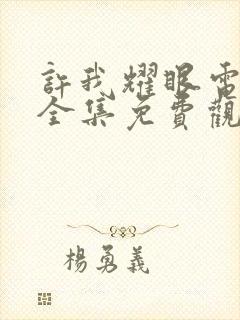 許我耀眼電
全集免費觀
楊勇義